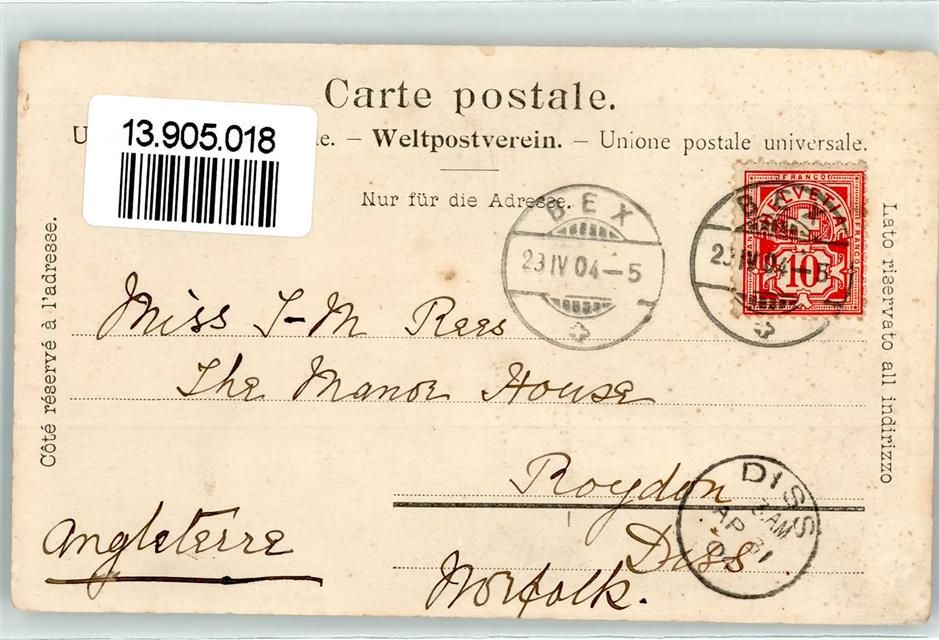 Carte postale.
13.905.018
U e. – Weltpostverein. – Unione postale universale.
Nur für die Adresse.
Côté réservé à l'adresse.
Lato riservato all indirizzo
BEX
23 IV 04–5
BEX
23 IV 04–5
FRANCO
HELVETIA
FRANCO
10
Miss J-M Rees
The Manor House
Roydon
Diss
Norfolk.
Angleterre
DISS
AM
AP
04